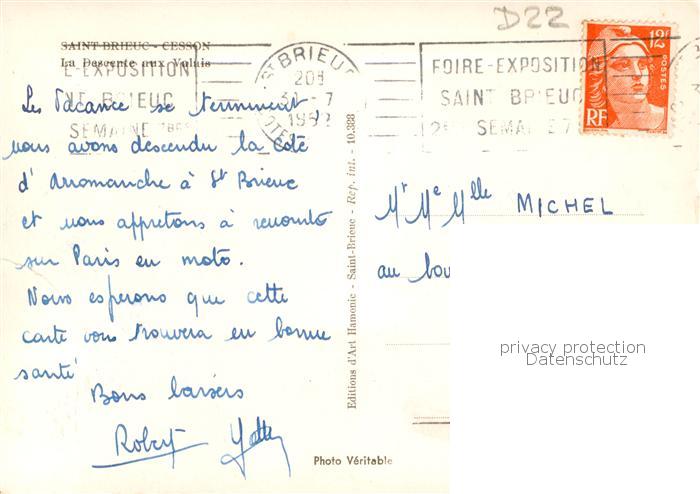 D22
SAINT-BRIEUC - CESSON
La Descente aux Valais
E-EXPOSITION
NT BRIEUC
SEMAINE
ST BRIEUC
20H
31 - 7
1952
FOIRE-EXPOSITION
SAINT BRIEUC
SEMAINE
12F
POSTES
RF
Les Vacance se terminent
nous avons descendu la côte
d'Arromanche à St Brieuc
et nous appretons à remonter
sur Paris en moto.
Nous esperons que cette
carte vous trouvera en bonne
santé
Bons baisers
Robert
Mr Me Mlle MICHEL
au
Editions d'Art Hamonic - Saint-Brieuc - Rep. int. - 10.388
Photo Véritable
privacy protection
Datenschutz